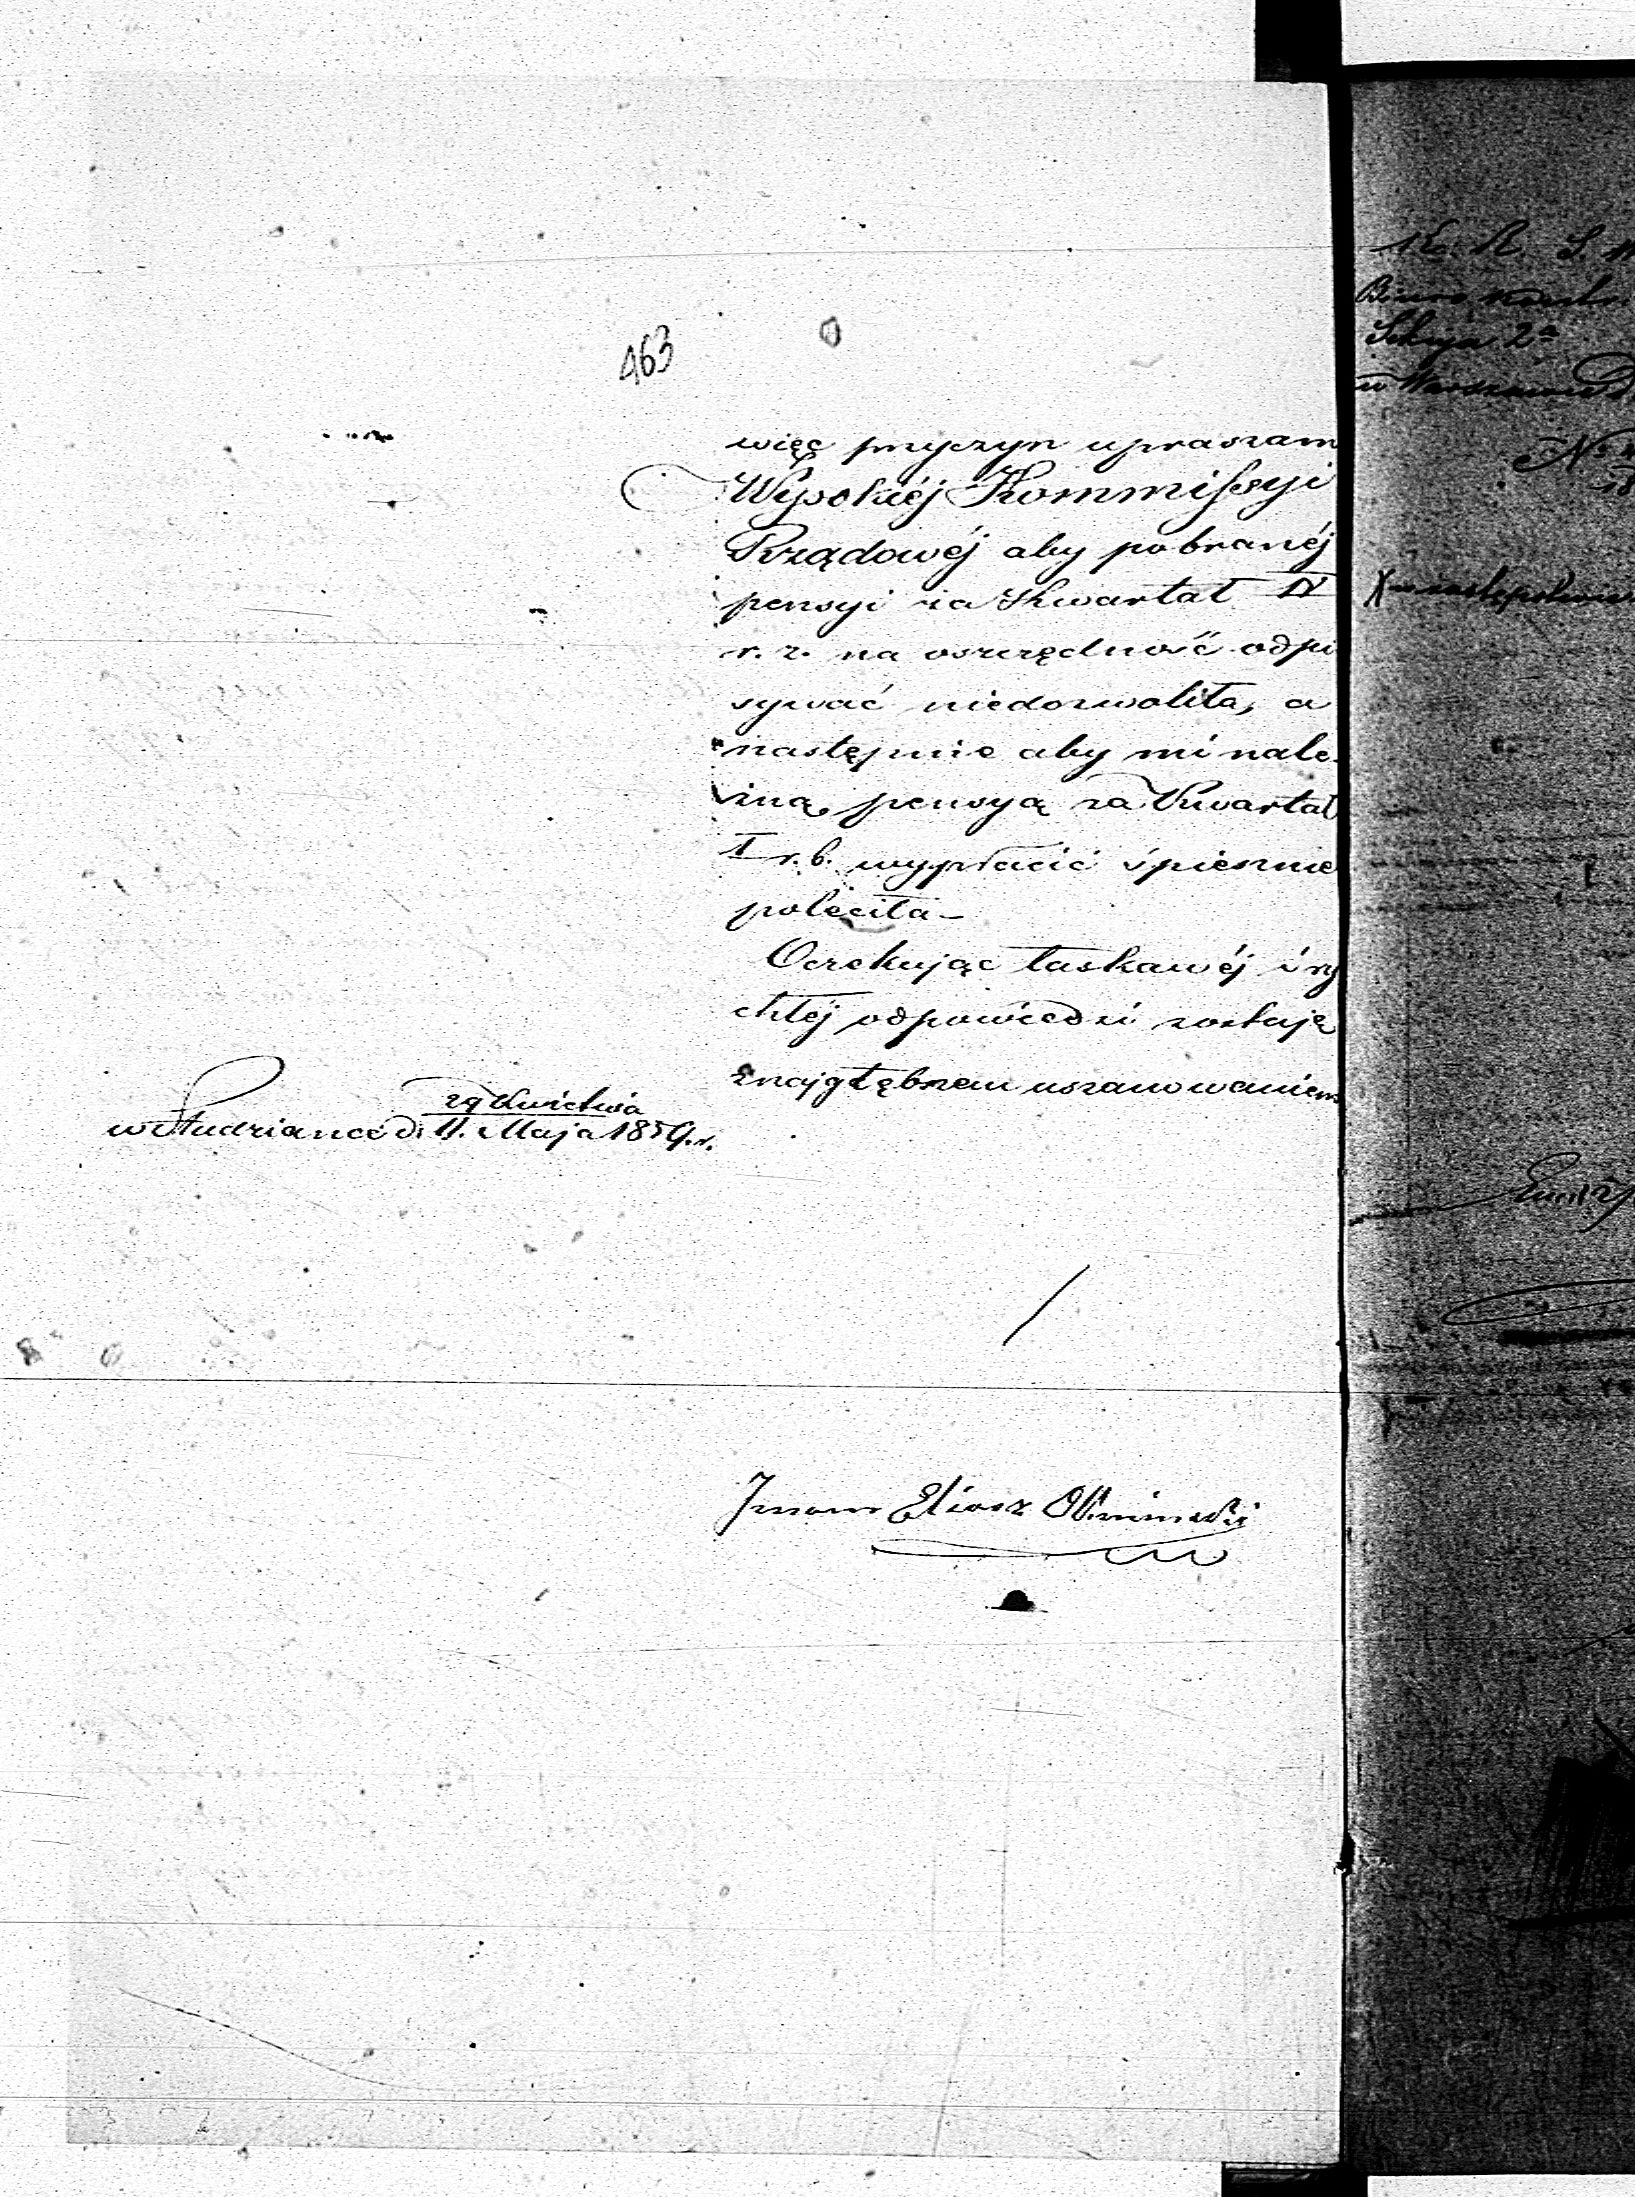 463
więc przyczyn upraszam
Wysokiéj Kommissyi
Rządowéj aby pobranéj
pensyi za Kwartał IV
r. z. na oszczędność odpi
sywać niedozwoliła, a
następnie aby mi nale-
żną pensyą za Kwartał
I r. b. wypłacić śpiesznie
poleciła –
Oczekując łaskawéj i ry
chłéj odpowiedzi zostaję
z najgłębszem uszanowaniem
29 Kwietnia
w Studziance d. 11. Maja 1859. r.
Imam Eliasz
K. R. S.
Biuro
Sekcya 2a
w Warszawie
No